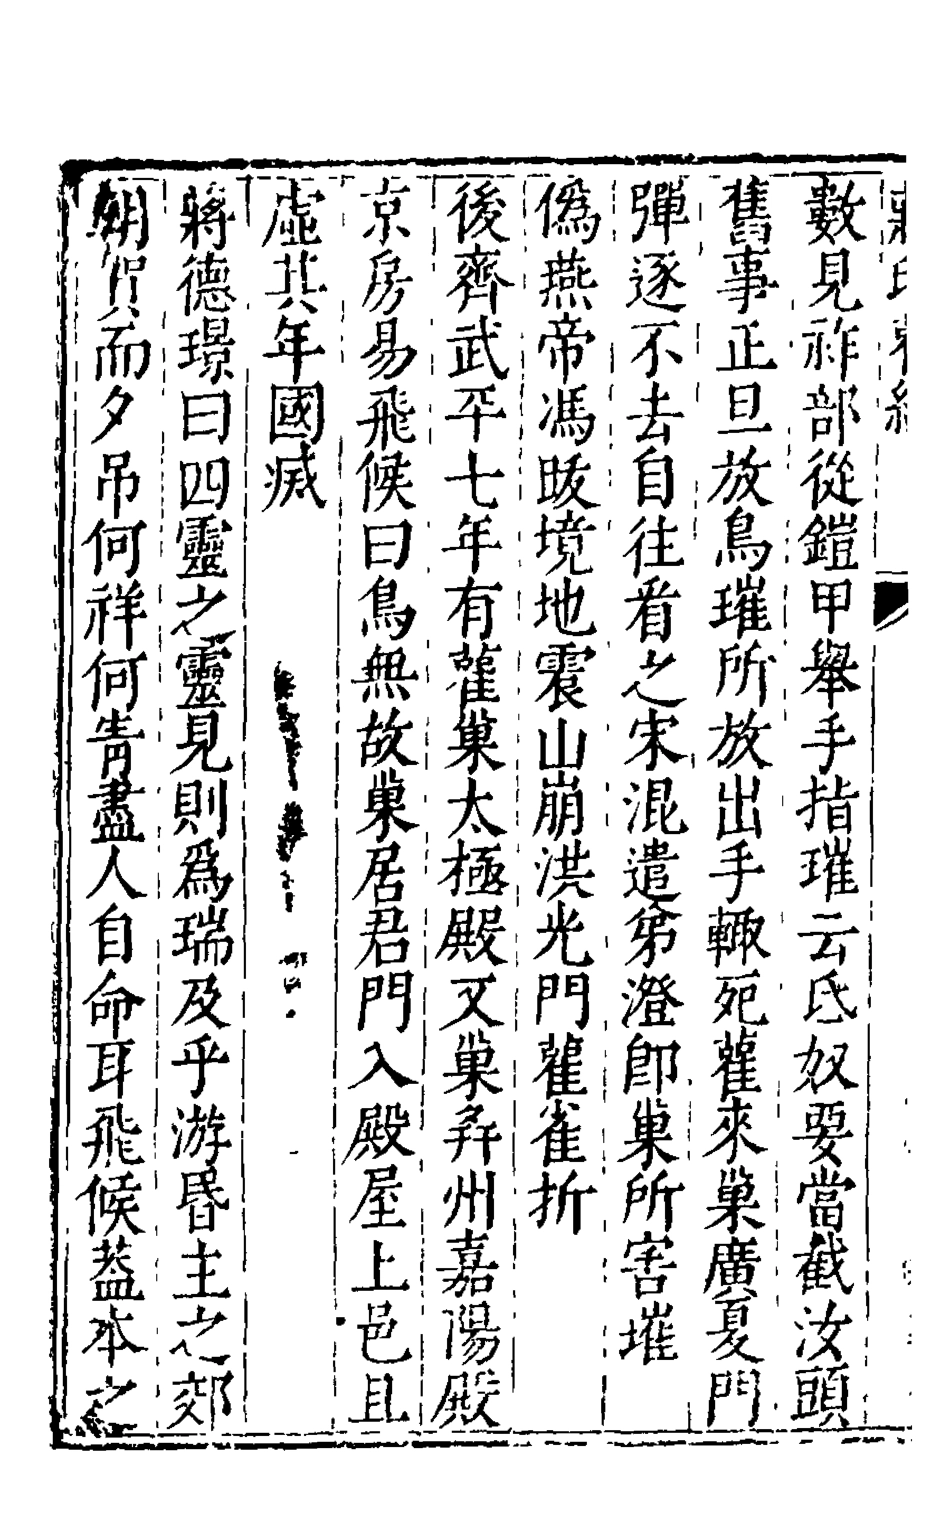 數見祚部從鎧甲舉手指璀云氐奴要當截汝頭
舊事正旦放鳥璀所放出手輙死雚來巢廣夏門
彈逐不去自往看之宋混遣弟澄卽巢所害璀
偽燕帝馮跋境地震山崩洪光門雚雀折
後齊武平七年有雚巢太極殿又巢幷州嘉陽殿
京房易飛候曰鳥無故巢居君門入殿屋上邑且
虛其年國滅
蔣德璟曰四靈之靈見則為瑞及乎游昏主之郊
朝賀而夕吊何祥何眚盡人自命耳飛候葢本之